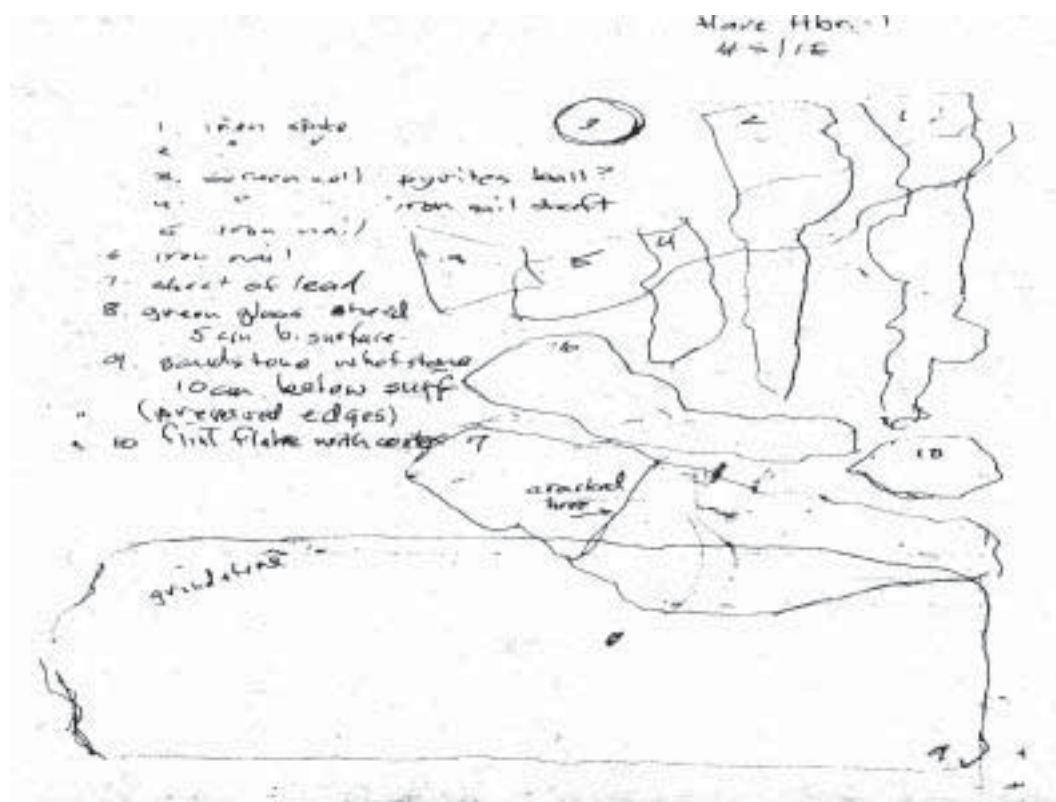 45/1E
1. iron spike
2 " "
3. pyrites ball?
4. " iron nail shaft
5 iron nail
6 iron nail
7. sheet of lead
8. green glass sherd
5 cm b. surface.
9. sandstone whetstone
10 cm below surf
(preserved edges)
10 flint flake with cortex
3
2
1
5
4
6
7
10
cracked
here
grindstone
9